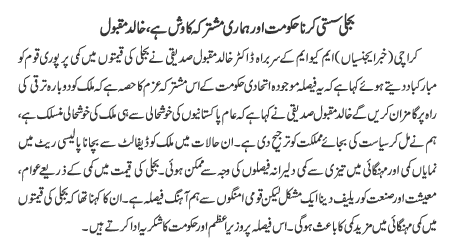 بجلی سستی کرنا حکومت اور ہماری مشترکہ کاوش ہے، خالد مقبول
کراچی (خبر ایجنسیاں) ایم کیو ایم کے سربراہ ڈاکٹر خالد مقبول صدیقی نے بجلی کی قیمتوں میں کمی پر پوری قوم کو
مبارکباد دیتے ہوئے کہا ہے کہ یہ فیصلہ موجودہ اتحادی حکومت کے اس مشترکہ عزم کا حصہ ہے کہ ملک کو دوبارہ ترقی کی
راہ پر گامزن کریں گے خالد مقبول صدیقی نے کہا ہے کہ عام پاکستانیوں کی خوشحالی سے ہی ملک کی خوشحالی منسلک ہے،
ہم نے مل کر سیاست کی بجائے مملکت کو ترجیح دی ہے۔ ان حالات میں ملک کو ڈیفالٹ سے بچانا پالیسی ریٹ میں
نمایاں کمی اور مہنگائی میں تیزی سے کمی دلیرانہ فیصلوں کی وجہ سے ممکن ہوئی۔ بجلی کی قیمت میں کمی کے ذریعے عوام،
معیشت اور صنعت کو ریلیف دینا ایک مشکل لیکن قومی امنگوں سے ہم آہنگ فیصلہ ہے۔ ان کا کہنا تھا کہ بجلی کی قیمتوں
میں کمی مہنگائی میں مزید کمی کا باعث ہوگی۔ اس فیصلہ پر وزیراعظم اور حکومت کا شکریہ ادا کرتے ہیں۔